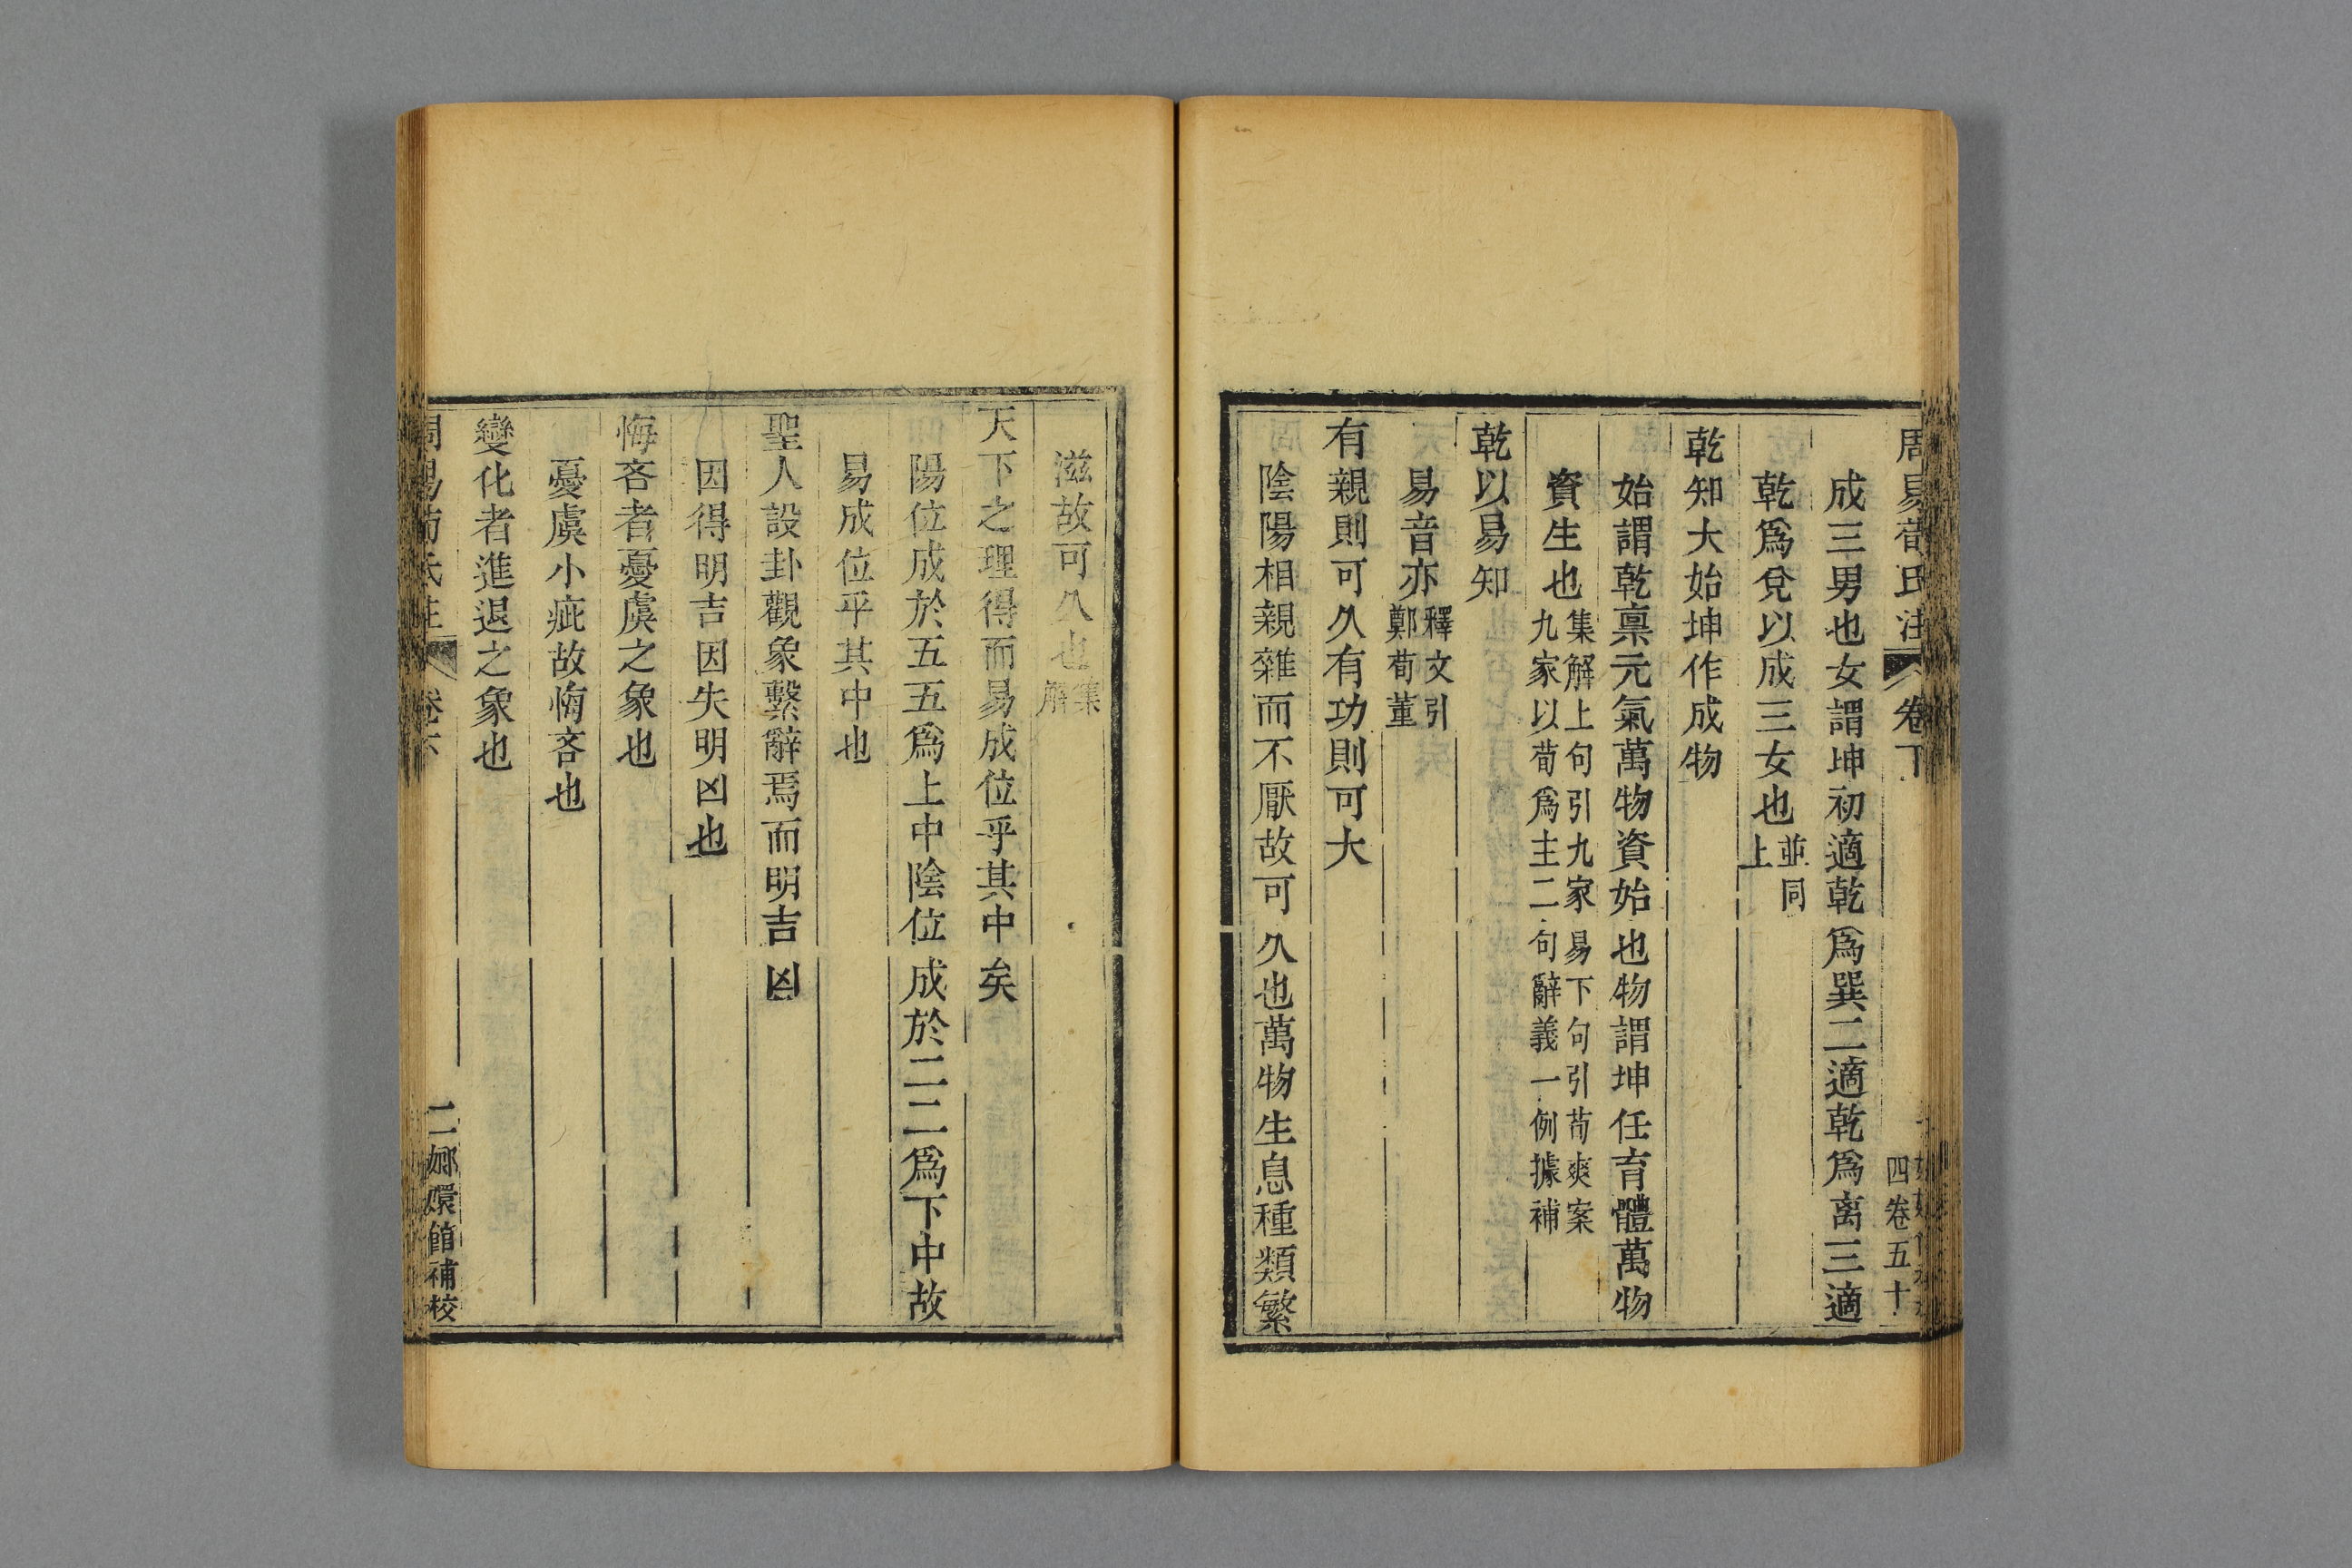 周易荀氏注 卷下
四卷五十
成三男也女謂坤初適乾爲巽二適乾爲离三適
乾爲兌以成三女也並同上
乾知大始坤作成物
始謂乾稟元氣萬物資始也物謂坤任育體萬物
資生也集解上句引九家易下句引荀爽案九家以荀爲主二句辭義一例據補
乾以易知
易音亦釋文引鄭荀董
有親則可久有功則可大
陰陽相親雜而不厭故可久也萬物生息種類繁
滋故可久也集解
天下之理得而易成位乎其中矣
陽位成於五五爲上中陰位成於二二爲下中故
易成位乎其中也
聖人設卦觀象繫辭焉而明吉凶
因得明吉因失明凶也
悔吝者憂虞之象也
憂虞小疵故悔吝也
變化者進退之象也
周易荀氏注 卷下
二 嫏嬛館補校